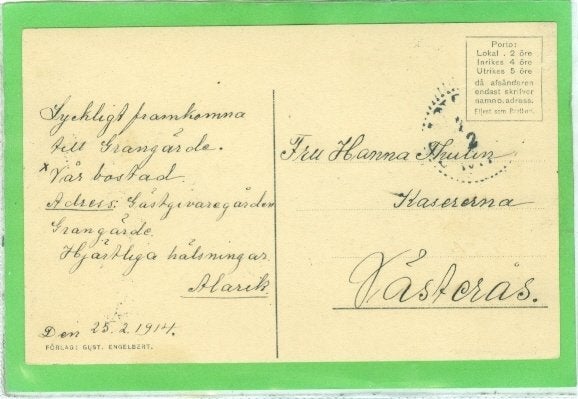 Lyckligt framkomna
till Grangärde.
x Vår bostad
Adress: Gästgivaregården
Grangärde
Hjärtliga hälsningar
Alarik
Den 25.2.1914.
FÖRLAG: GUST. ENGELBERT.
Porto:
Lokal . 2 öre
Inrikes 4 öre
Utrikes 5 öre
då afsändaren
endast skrifver
namn o. adress.
Eljest som Brefkort.
Fru Hanna Thulin
Kasererna
Västerås.